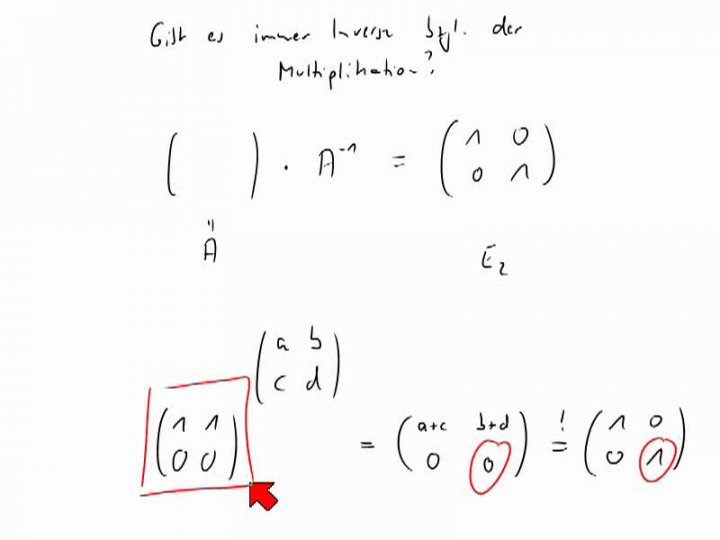 Gibt es immer Inverse bzgl. der
Multiplikation?
( ) · A⁻¹ = (1 0
0 1)
"
A
E₂
(a b
c d)
(1 1
0 0)
= (a+c b+d
0 0)
! =
(1 0
0 1)